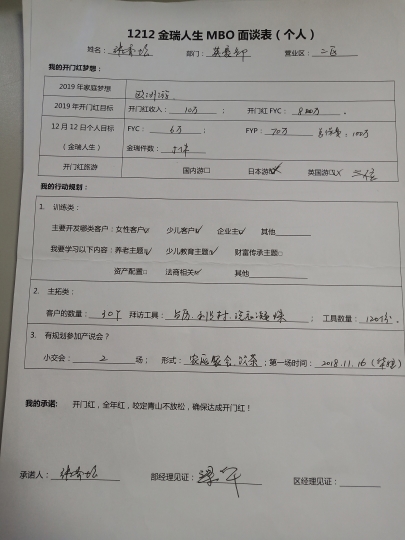 1212金瑞人生MBO面谈表（个人）
姓名： 部门： 营业区：二区
我的开门红梦想：
2019年家庭梦想 欧洲游
2019年开门红目标 开门红收入：10万； 开门红FYC：万。
12月12日个人目标（金瑞人生） FYC：6万； FYP：20万 100万
金瑞件数：件
开门红旅游 国内游□ 日本游☑ 英国游□
我的行动规划：
1. 训练类：
主要开发哪类客户：女性客户☑ 少儿客户☑ 企业主☑ 其他
我要学习以下内容：养老主题☑ 少儿教育主题☑ 财富传承主题□
资产配置□ 法商相关☑ 其他
2. 主拓类：
客户的数量：30个 拜访工具：台历、 ； 工具数量：120份。
3. 有规划参加产说会？
小交会：2场； 形式：家庭聚会、饮茶；第一场时间：2018.11.16
我的承诺： 开门红，全年红，咬定青山不放松，确保达成开门红！
承诺人： 部经理见证： 区经理见证：